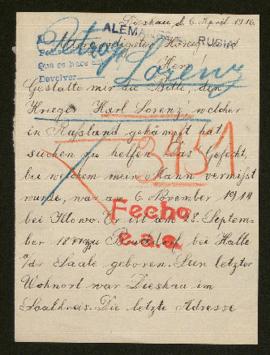 Dieskau, d. 6. April 1916.
ALEMA
RUSIA
Lorenz
Gestatte mir die Bitte, den
Krieger Karl Lorenz, welcher
in Rußland gekämpft hat
suchen zu helfen. Das Gefecht,
bei welchem mein Mann vermißt
wurde, war am 6. November 1914
3551
bei
Fecho
Er ist am 23. Septem-
ber
bei Halle
a/d Saale geboren. Sein letzter
Wohnort war Dieskau im
Saalkreis. Die letzte Adresse